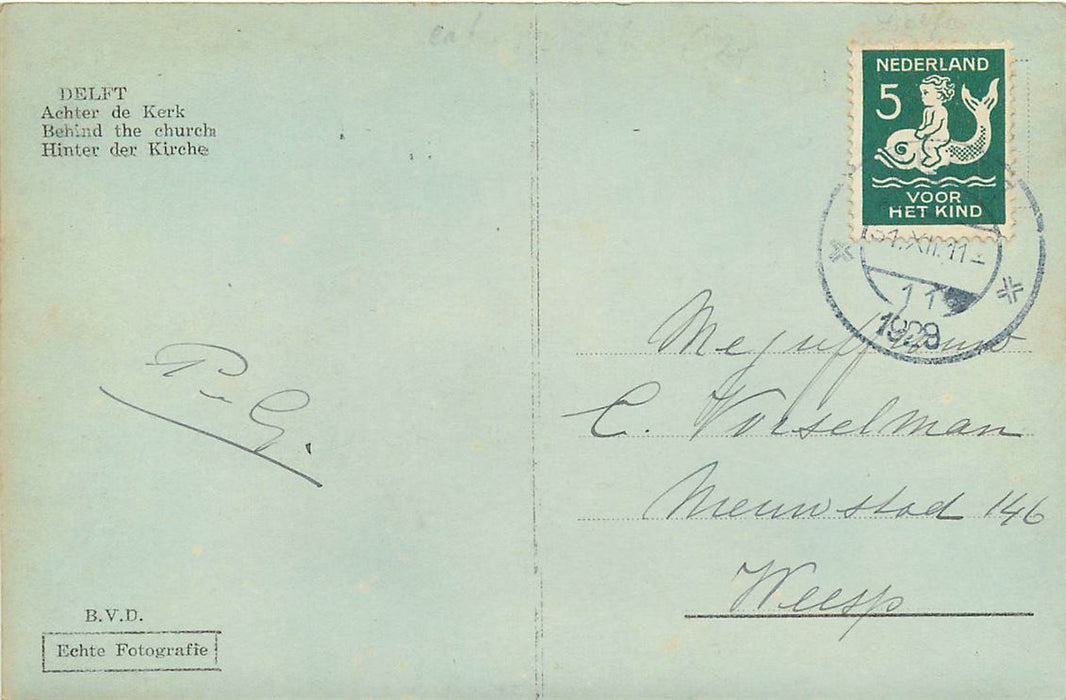 DELFT
Achter de Kerk
Behind the church
Hinter der Kirche
NEDERLAND
5
VOOR
HET KIND
31.XII.11
11
Mejuffrouw
C. Vorselman
Nieuwstad 146
Weesp
B.V.D.
Echte Fotografie